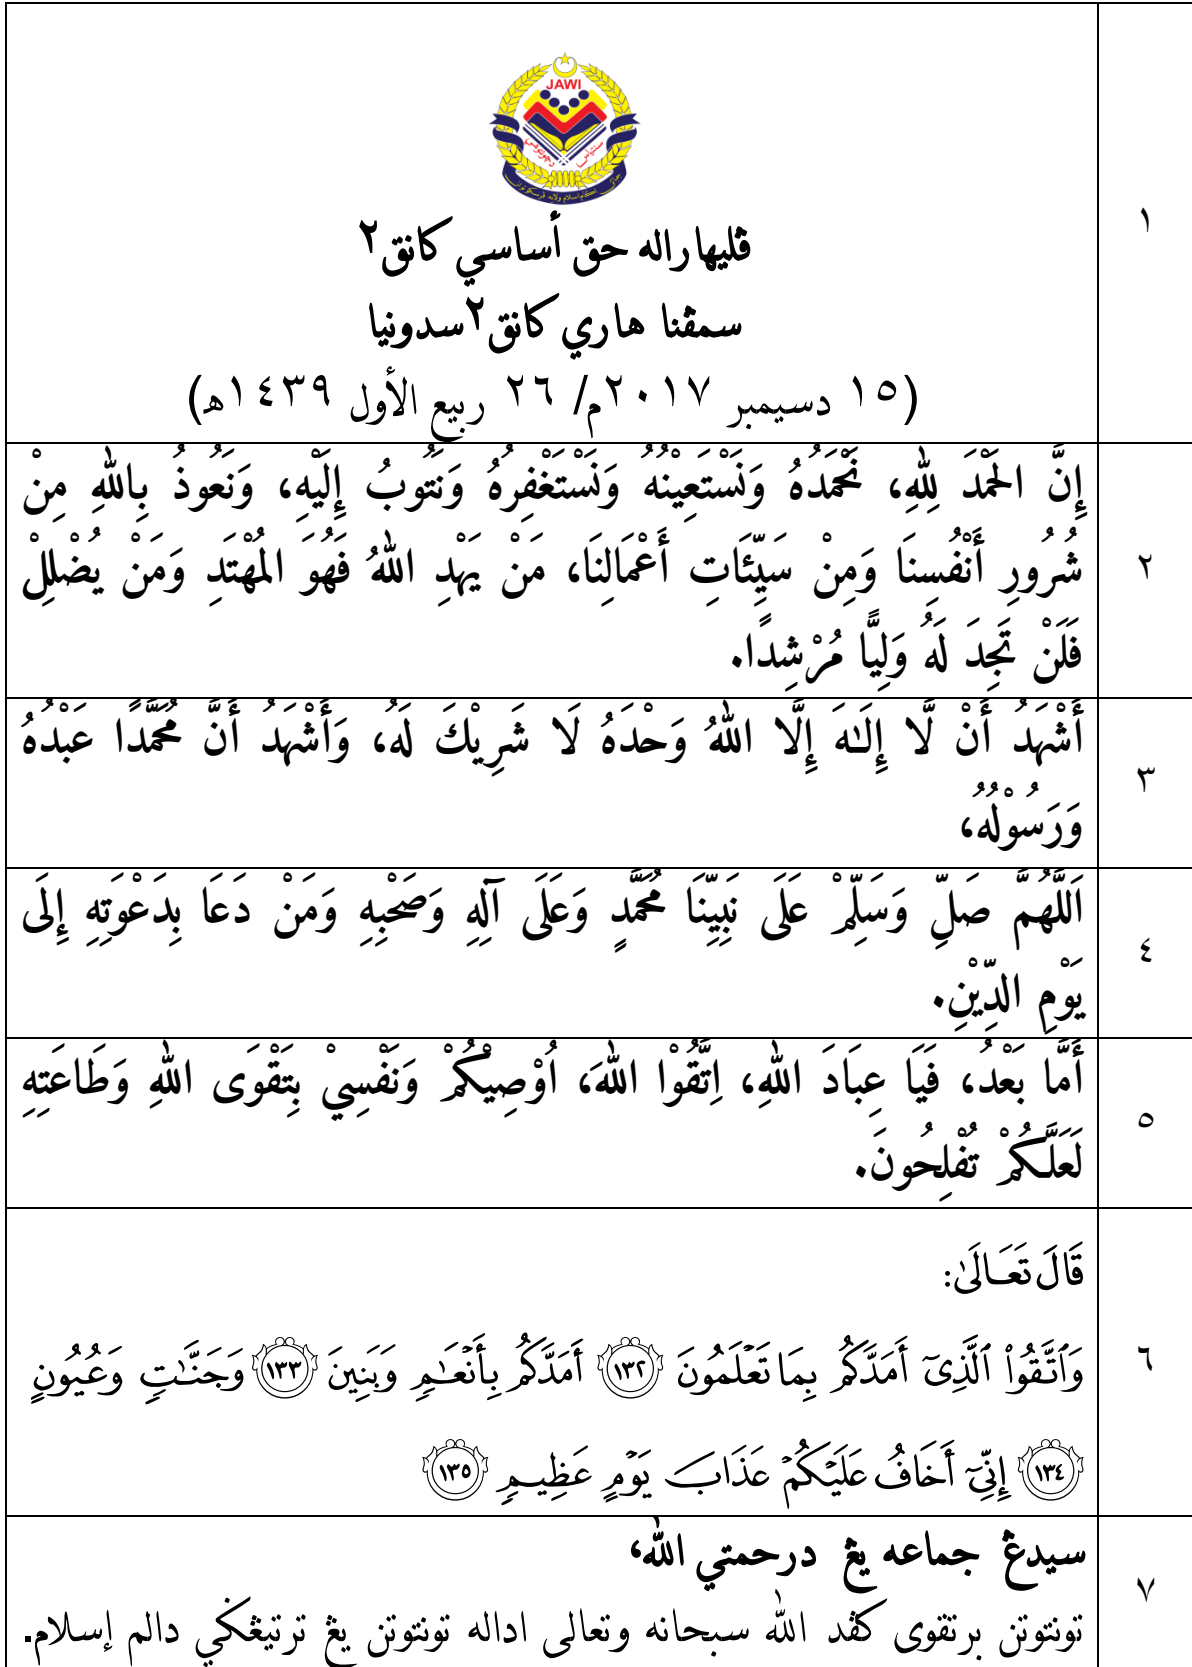 JAWI
ڤليهاراله حق أساسي كانق٢
سمڤنا هاري كانق٢ سدونيا
(١٥ دسيمبر ٢٠١٧م/ ٢٦ ربيع الأول ١٤٣٩ه)
١
إِنَّ الحَمْدَ لِلَّهِ، نَحْمَدُهُ وَنَسْتَعِيْنُهُ وَنَسْتَغْفِرُهُ وَنَتُوبُ إِلَيْهِ، وَنَعُوذُ بِاللَّهِ مِنْ
شُرُورِ أَنْفُسِنَا وَمِنْ سَيِّئَاتِ أَعْمَالِنَا، مَنْ يَهْدِ اللهُ فَهُوَ المُهْتَدِ وَمَنْ يُضْلِلْ
فَلَنْ تَجِدَ لَهُ وَلِيًّا مُرْشِدًا.
٢
أَشْهَدُ أَنْ لَّا إِلَـٰهَ إِلَّا اللهُ وَحْدَهُ لَا شَرِيْكَ لَهُ، وَأَشْهَدُ أَنَّ مُحَمَّدًا عَبْدُهُ
وَرَسُوْلُهُ،
٣
اَللَّهُمَّ صَلِّ وَسَلِّمْ عَلَى نَبِيِّنَا مُحَمَّدٍ وَعَلَى آلِهِ وَصَحْبِهِ وَمَنْ دَعَا بِدَعْوَتِهِ إِلَى
يَوْمِ الدِّيْنِ.
٤
أَمَّا بَعْدُ، فَيَا عِبَادَ اللهِ، اِتَّقُوْا اللهَ، اُوْصِيْكُمْ وَنَفْسِيْ بِتَقْوَى اللهِ وَطَاعَتِهِ
لَعَلَّكُمْ تُفْلِحُونَ.
٥
قَالَ تَعَـالَىٰ:
وَٱتَّقُوا۟ ٱلَّذِىٓ أَمَدَّكُم بِمَا تَعْلَمُونَ ١٣٢ أَمَدَّكُم بِأَنْعَـٰمٍ وَبَنِينَ ١٣٣ وَجَنَّـٰتٍ وَعُيُونٍ
١٣٤ إِنِّىٓ أَخَافُ عَلَيْكُمْ عَذَابَ يَوْمٍ عَظِيمٍ ١٣٥
٦
سيدڠ جماعه يڠ درحمتي الله،
تونتوتن برتقوى كڤد الله سبحانه وتعالى اداله تونتوتن يڠ ترتيڠݢي دالم إسلام.
٧